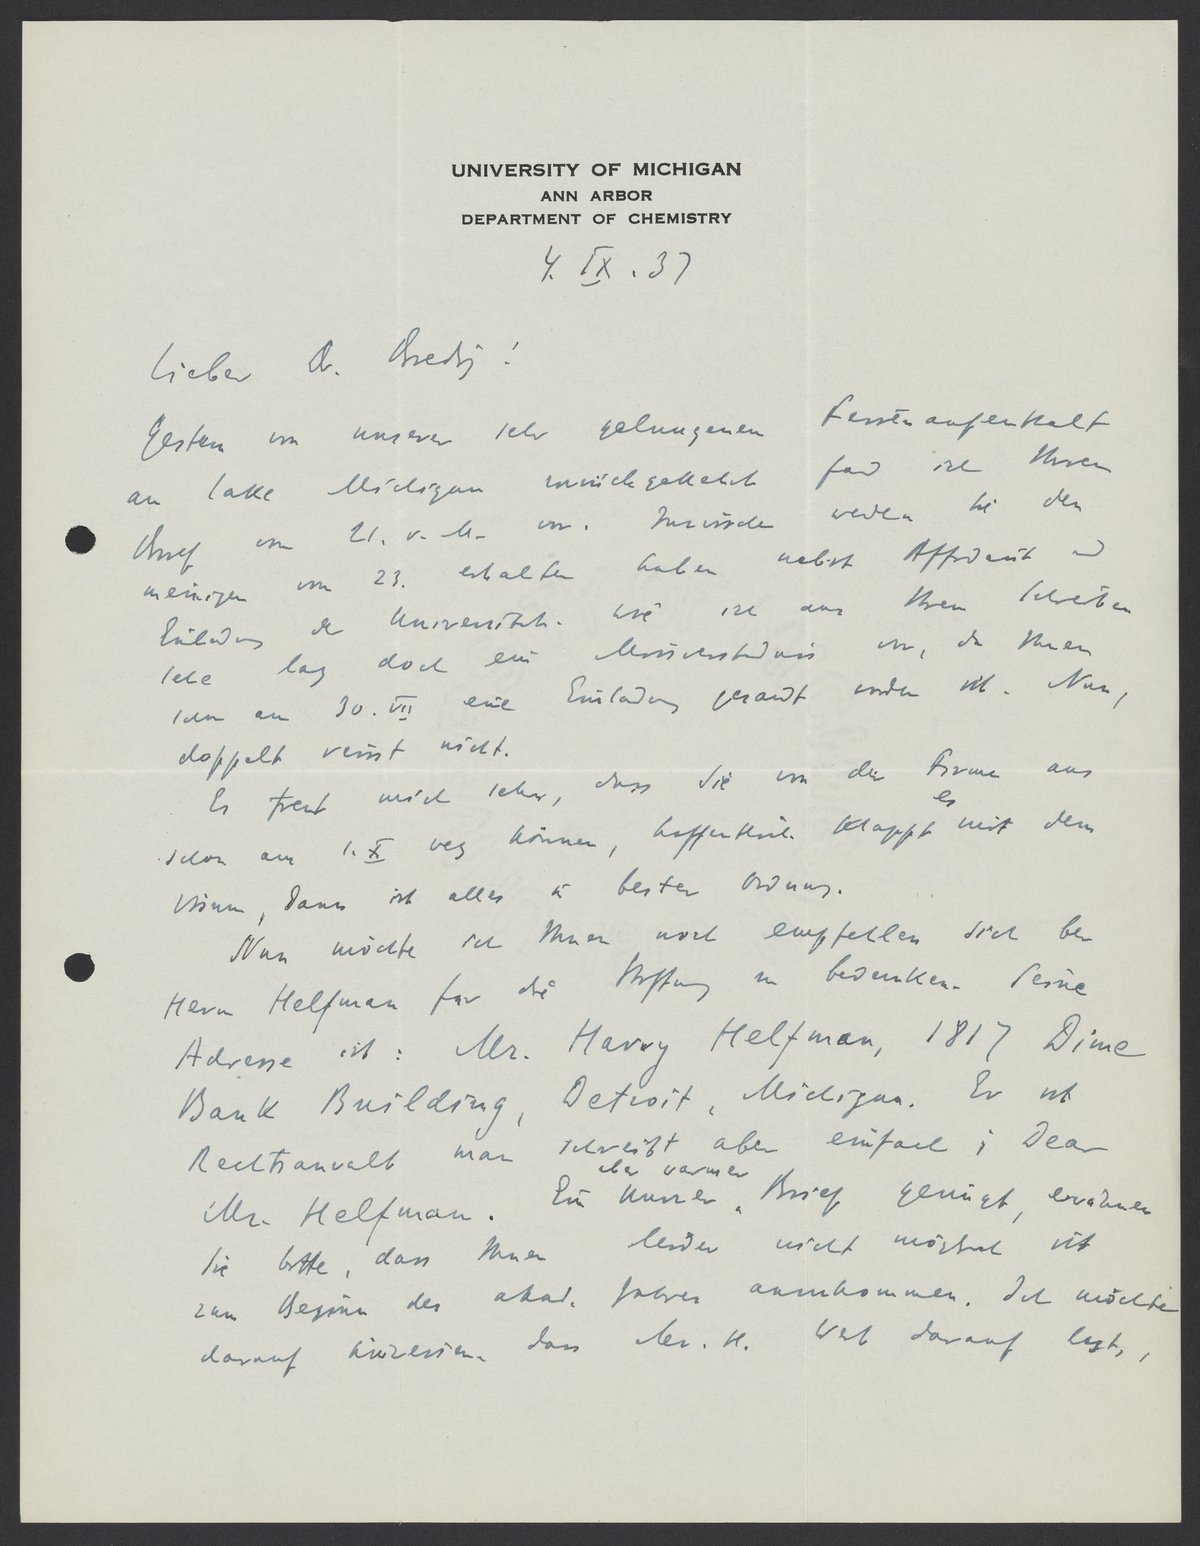 UNIVERSITY OF MICHIGAN
ANN ARBOR
DEPARTMENT OF CHEMISTRY
4. IX. 37
Lieber Dr. Bredig!
Gestern von unserer sehr gelungenen Ferienaufenthalt
am Lake Michigan zurückgekehrt fand ich Ihren
Brief vom 21. v. M. vor. Inzwischen werden Sie den
meinigen vom 23. erhalten haben nebst Affidavit u
Einladung der Universität. Wie ich aus Ihrem Schreiben
sehe lag doch ein Missverständnis vor, da Ihnen
schon am 30. VII eine Einladung gesandt worden ist. Nun,
doppelt reisst nicht.
Es freut mich sehr, dass Sie von der Firma aus
schon am 1. X weg können, hoffentlich klappt es mit dem
Visum, dann ist alles in bester Ordnung.
Nun möchte ich Ihnen noch empfehlen sich bei
Herrn Helfman für die Stiftung zu bedanken. Seine
Adresse ist: Mr. Harry Helfman, 1817 Dime
Bank Building, Detroit, Michigan. Er ist
Rechtsanwalt man schreibt aber einfach; Dear
Mr. Helfman. Ein kurzer aber warmer Brief genügt, erwähnen
Sie bitte, dass Ihnen leider nicht möglich ist
zum Beginn des akad. Jahres anzukommen. Ich möchte
darauf hinweisen dass Mr. H. Wert darauf legt,